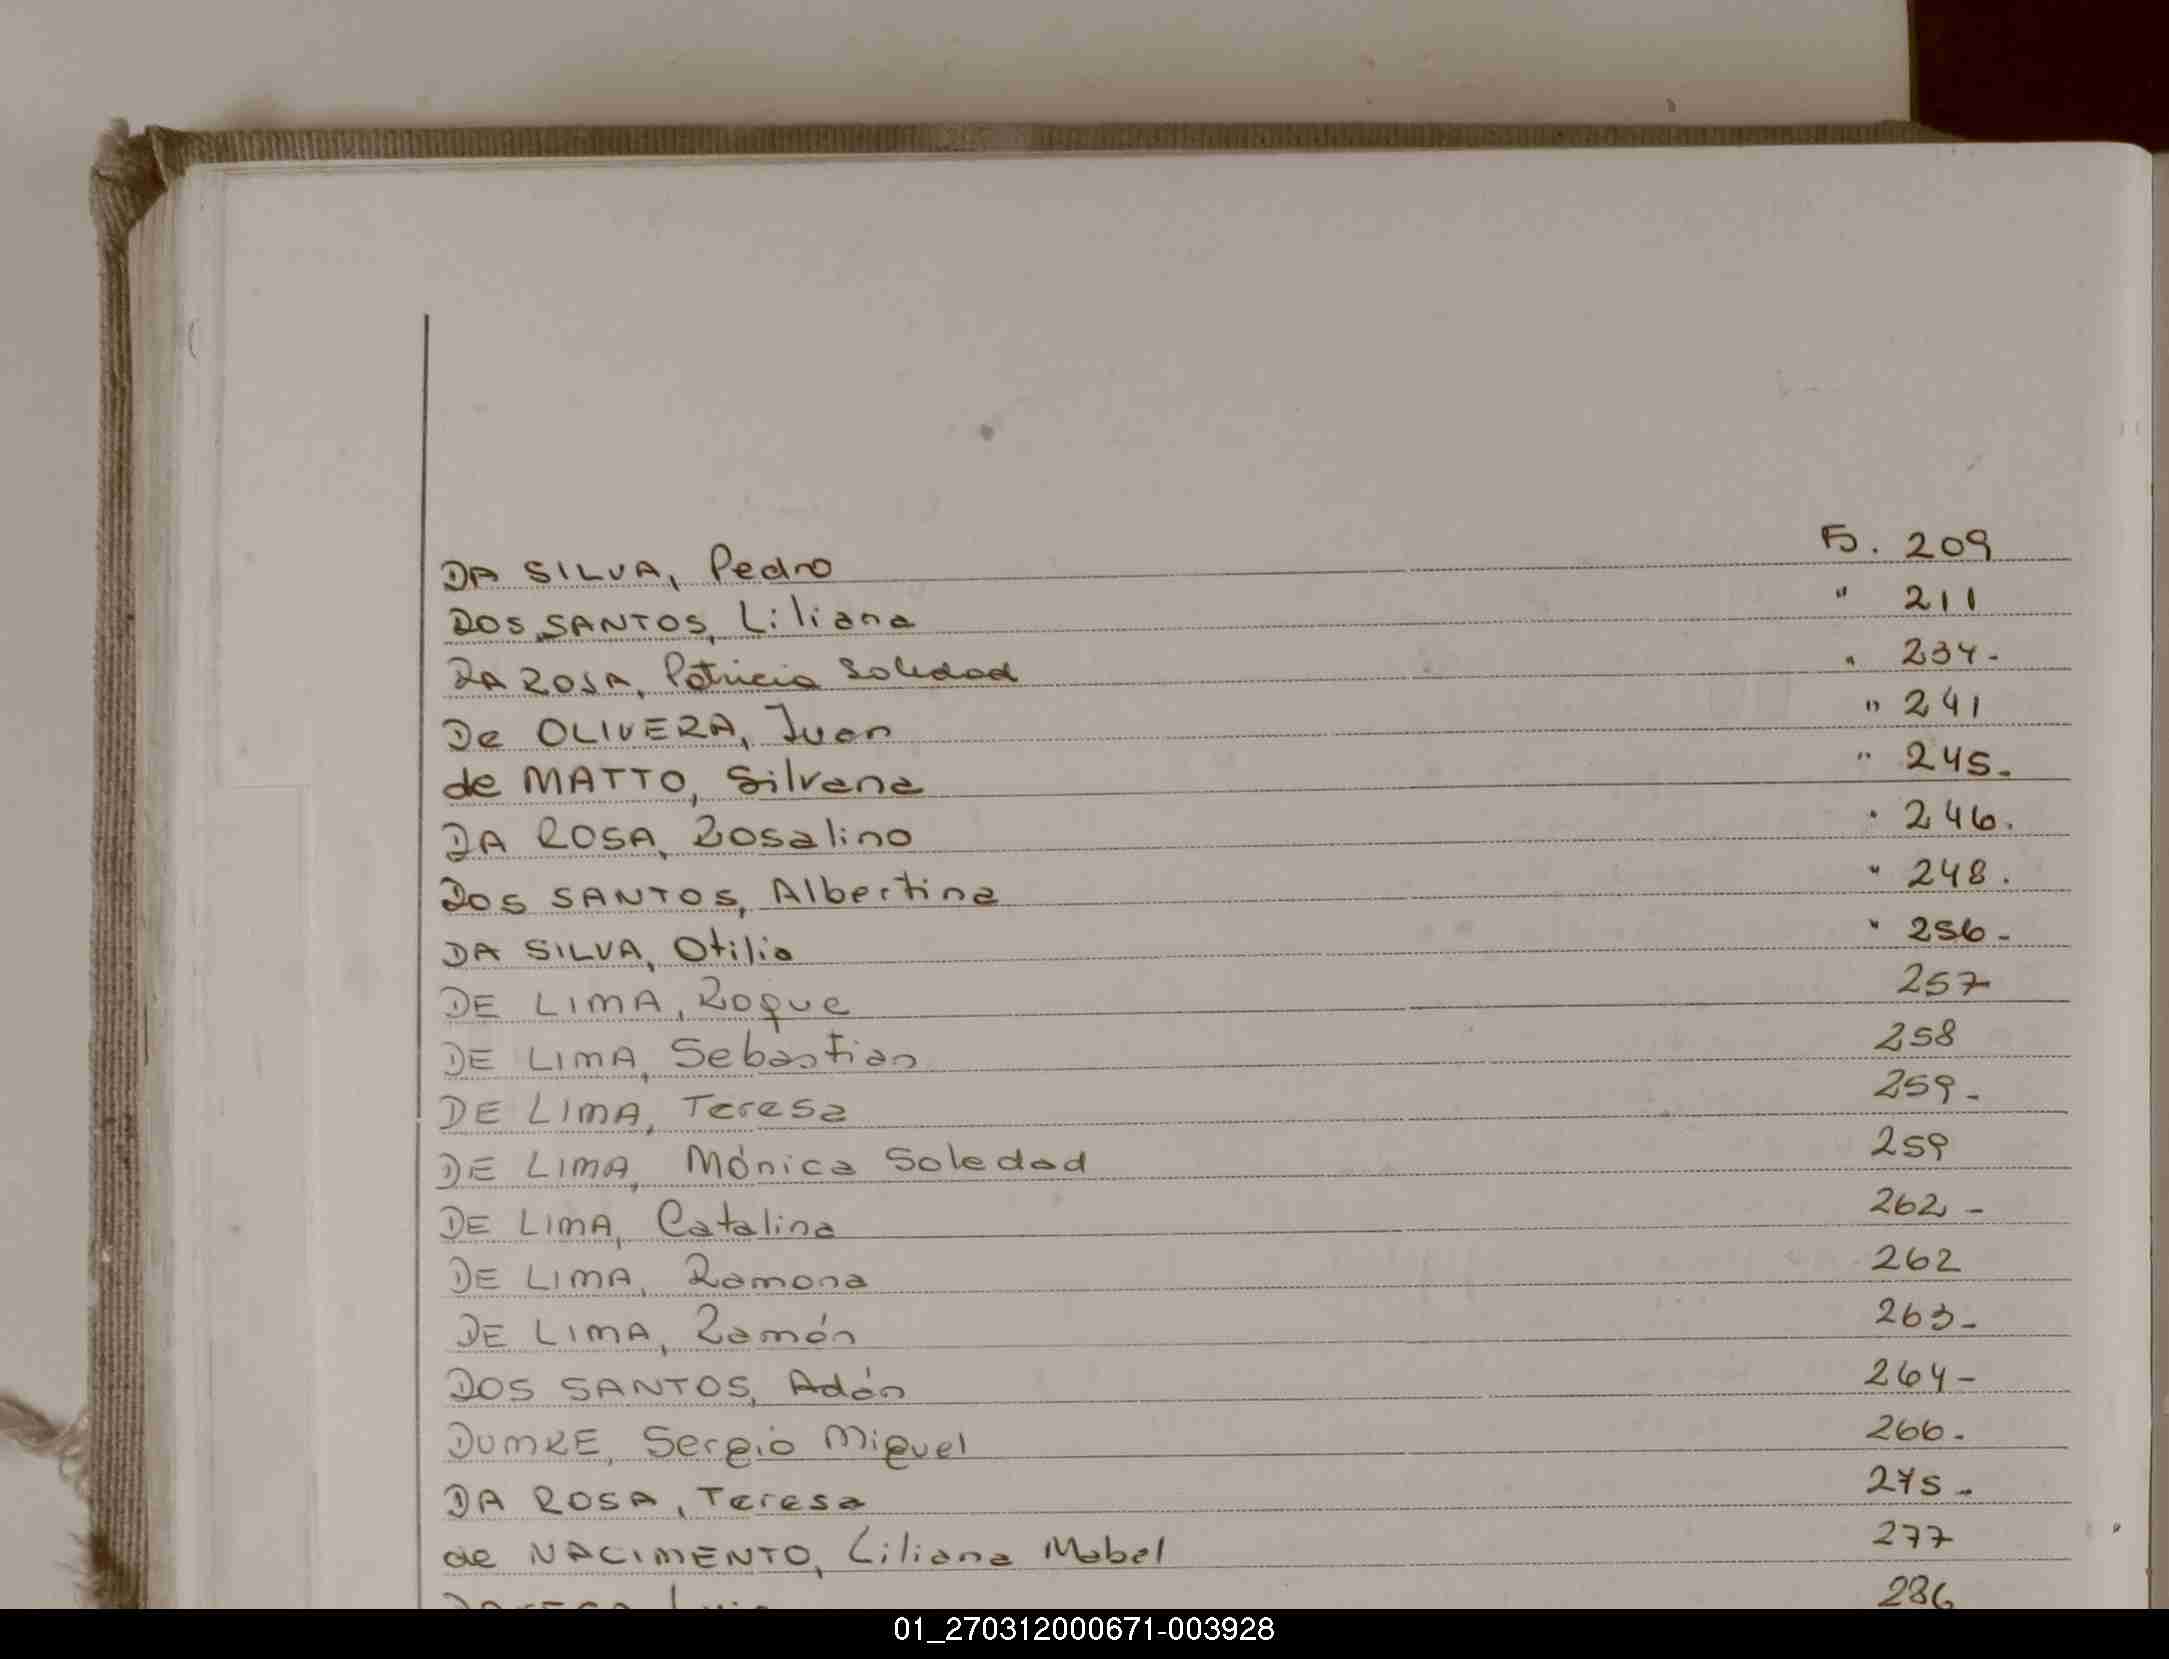 DA SILVA, Pedro Fs. 209
DOS SANTOS, Liliana " 211
DA ROSA, Patricia Soledad " 234-
De OLIVERA, Juan " 241
de MATTO, Silvana " 245-
DA ROSA, Rosalino " 246.
DOS SANTOS, Albertina " 248.
DA SILVA, Otilio " 256-
DE LIMA, Roque 257
DE LIMA, Sebastian 258
DE LIMA, Teresa 259-
DE LIMA, Mónica Soledad 259
DE LIMA, Catalina 262-
DE LIMA, Ramona 262
DE LIMA, Ramón 263-
DOS SANTOS, Adán 264-
DUMKE, Sergio Miguel 266.
DA ROSA, Teresa 275-
de NACIMENTO, Liliana Mabel 277
286
01_270312000671-003928